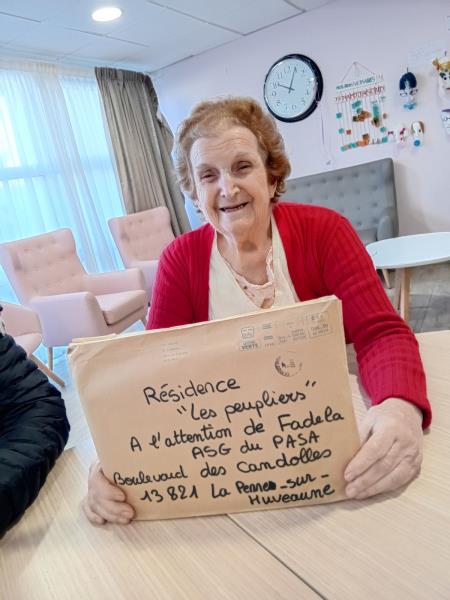 Résidence
"Les peupliers"
A l'attention de Fadela
ASG du PASA
Boulevard des Candolles
13821 La Penne-sur-
Huveaune